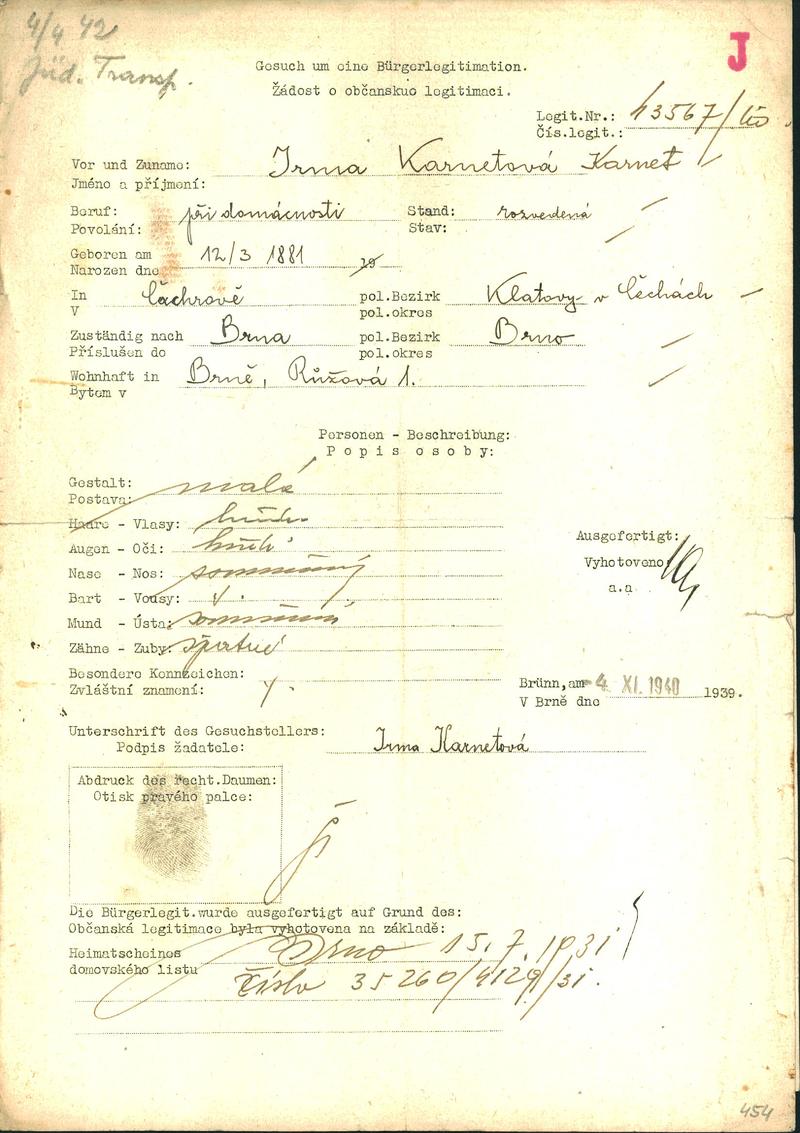 4/4 42
Jüd. Transp.
J
Gesuch um eine Bürgerlegitimation.
Žádost o občanskuo legitimaci.
Legit.Nr.: 43567/40
Čís.legit.:
Vor und Zuname: Irma Karnetová Karnet
Jméno a příjmení:
Beruf: při domácnosti Stand: rozvedená
Povolání: Stav:
Geboren am 12/3 1881 19
Narozen dne
In Čachrově pol.Bezirk Klatovy v Čechách
V pol.okres
Zuständig nach Brna pol.Bezirk Brno
Příslušen do pol.okres
Wohnhaft in Brně, Růžová 1.
Bytem v
Personen - Beschreibung:
Popis osoby:
Gestalt: malá
Postava:
Haare - Vlasy:
Augen - Oči:
Ausgefertigt:
Vyhotoveno
a.a
Nase - Nos: souměrný
Bart - Vousy:
Mund - Ústa: souměrná
Zähne - Zuby: špatné
Besondere Kennzeichen:
Zvláštní znamení:
Brünn, am 4. XI. 1940 1939.
V Brně dne
Unterschrift des Gesuchstellers:
Podpis žadatele: Irma Karnetová
Abdruck des recht.Daumen:
Otisk pravého palce:
Die Bürgerlegit.wurde ausgefertigt auf Grund des:
Občanská legitimace byla vyhotovena na základě:
Heimatscheines Brno 15.7.1931
domovského listu číslo 35260/4129/31.
454